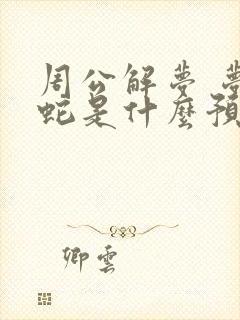 周公解夢 夢
蛇是什麼預
卿雲